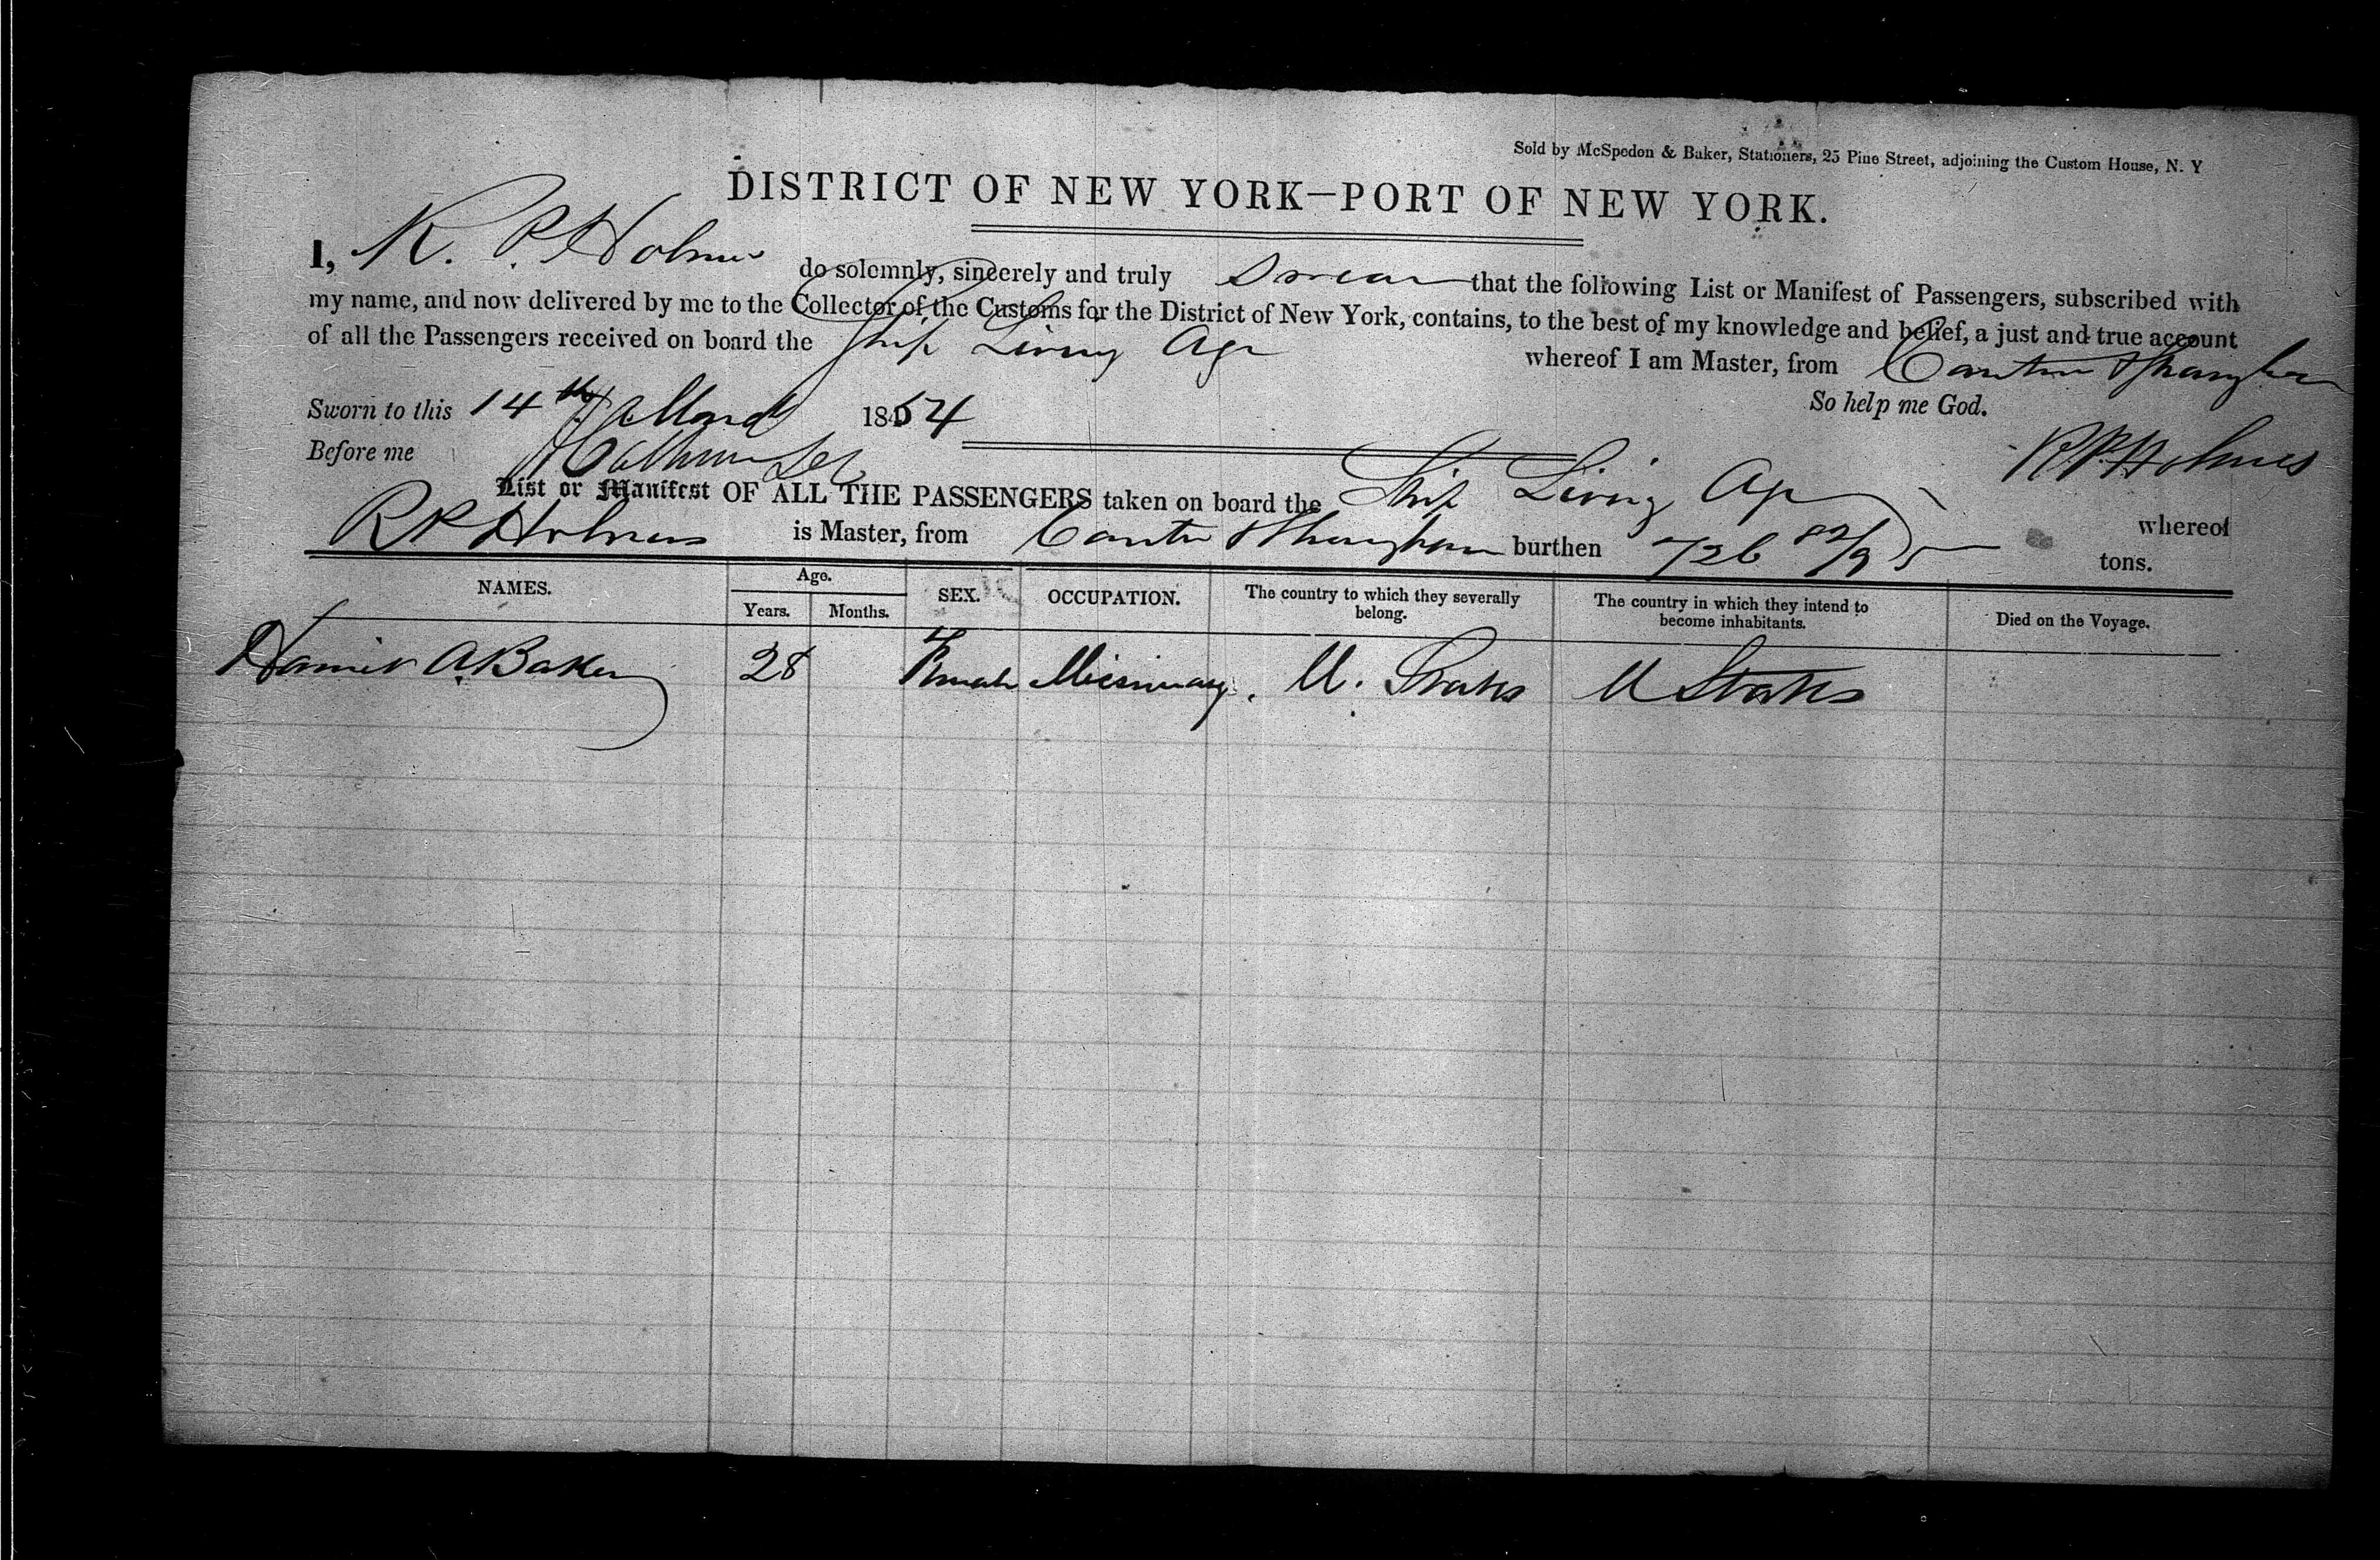 Sold by McSpedon & Baker, Stationers, 25 Pine Street, adjoining the Custom House, N. Y
DISTRICT OF NEW YORK—PORT OF NEW YORK.
I, R. P. Holmes do solemnly, sincerely and truly swear that the following List or Manifest of Passengers, subscribed with
my name, and now delivered by me to the Collector of the Customs for the District of New York, contains, to the best of my knowledge and belief, a just and true account
of all the Passengers received on board the Ship Living Age whereof I am Master, from Canton & Shanghai
Sworn to this 14th March 1854 So help me God.
Before me R P Holmes
List or Manifest OF ALL THE PASSENGERS taken on board the Ship Living Age whereof
R P Holmes is Master, from Canton & Shanghai burthen 726 82/95 tons.
NAMES. Age. Years. Months. SEX. OCCUPATION. The country to which they severally belong. The country in which they intend to become inhabitants. Died on the Voyage.
A. Baker 28 Female Missionary. U. States U States